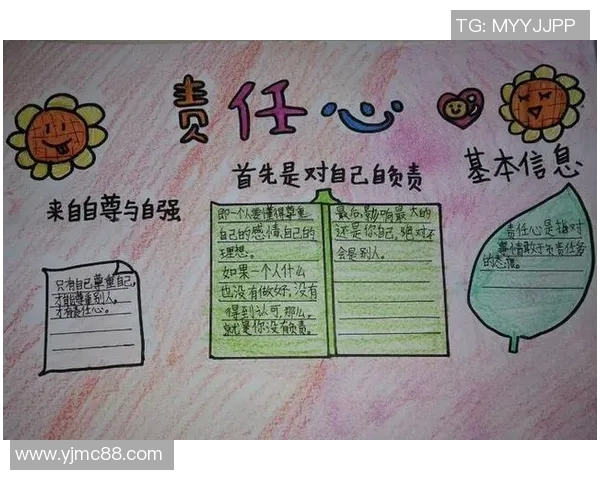 TG: MYYJJPP
责任心
首先是对自己自负责
基本信息
来自自尊与自强
即一个人要懂得尊重
自己的感情、自己的
理想。
如果一个人什么
也没有做好，没有
得到认可，那么，
就是你没有负责。
最后影响最大的
还是你自己，绝对不
会是别人。
责任心是指对
事情敢于负责任务
的态度。
只有自己尊重自己，
才能尊重别人。
才有责任心。
www.yjmc88.com